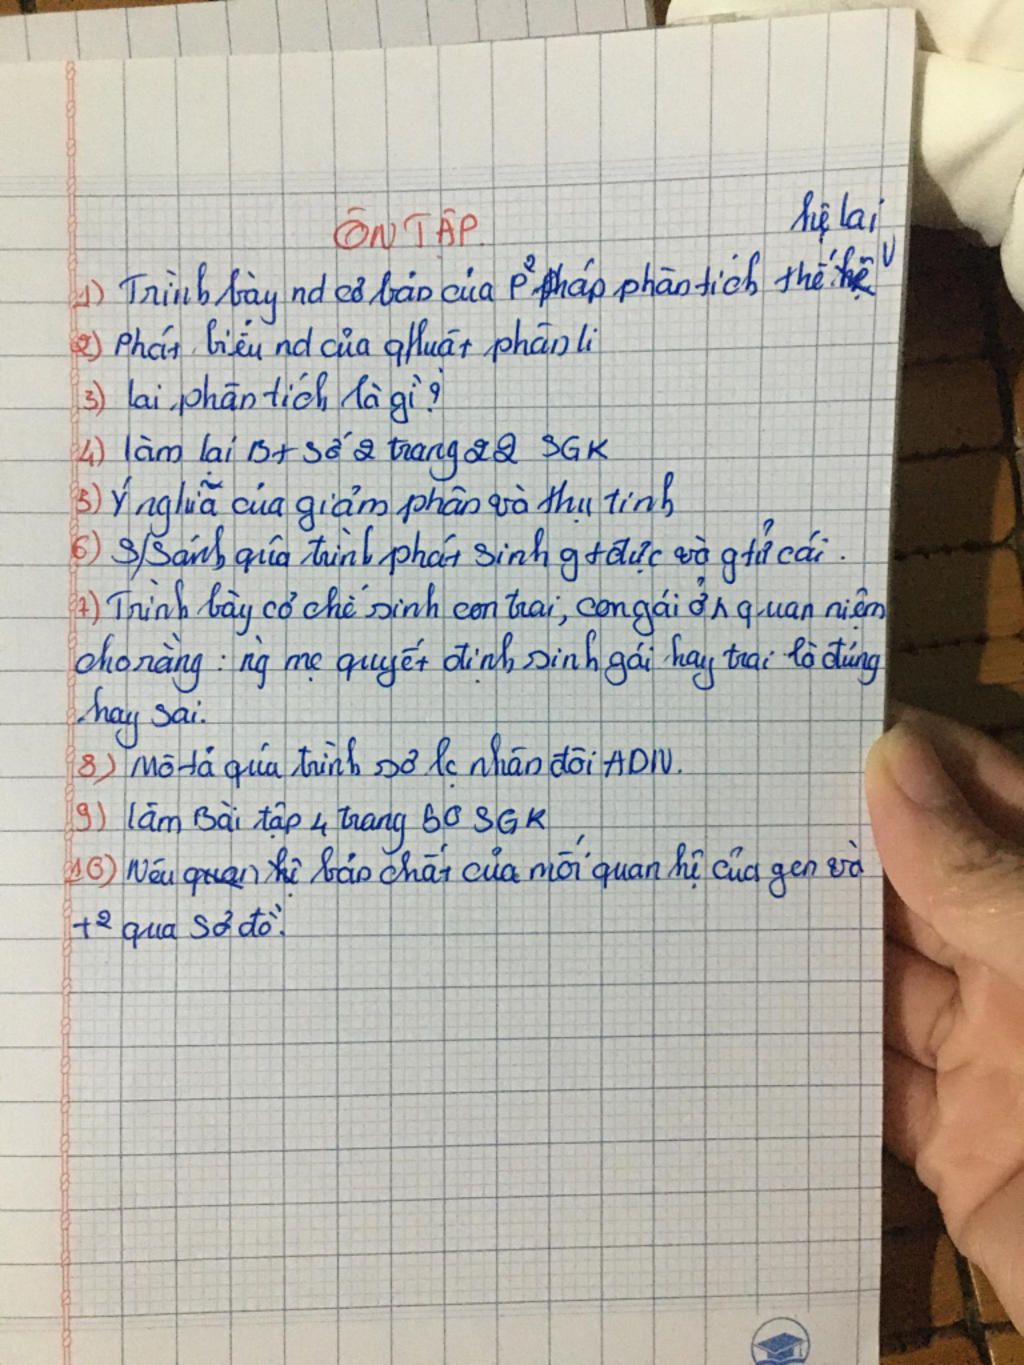 ÔN TẬP
hệ lai
1) Trình bày nd cơ bản của P² pháp phân tích thế hệ
2) Phát biểu nd của q/luật phân li
3) lai phân tích là gì?
4) làm lại Bt số 2 trang 22 SGK
5) Ý nghĩa của giảm phân và thụ tinh
6) S/sánh quá trình phát sinh gt đực và g tử cái.
7) Trình bày cơ chế sinh con trai, con gái ở ^ quan niệm
cho rằng : ng mẹ quyết định sinh gái hay trai là đúng
hay sai.
8) Mô tả quá trình sơ lc nhân đôi ADN.
9) làm Bài tập 4 trang 50 SGK
10) Nêu hệ bản chất của mối quan hệ của gen và
t² qua sơ đồ.